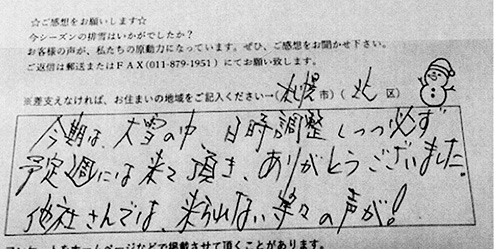 ☆ご感想をお願いします☆
今シーズンの排雪はいかがでしたか?
お客様の声が、私たちの原動力になっています。ぜひ、ご感想をお聞かせ下さい。
ご返信は郵送またはFAX(011-879-1951)にてお願い致します。
※差支えなければ、お住まいの地域をご記入ください→(札幌市)(北区)
今期は、大雪の中、日時調整しつつ必ず
予定週には来て頂き、ありがとうございました。
他社さんでは、来ない等々の声が!
アンケートをホームページなどで掲載させて頂くことがあります。